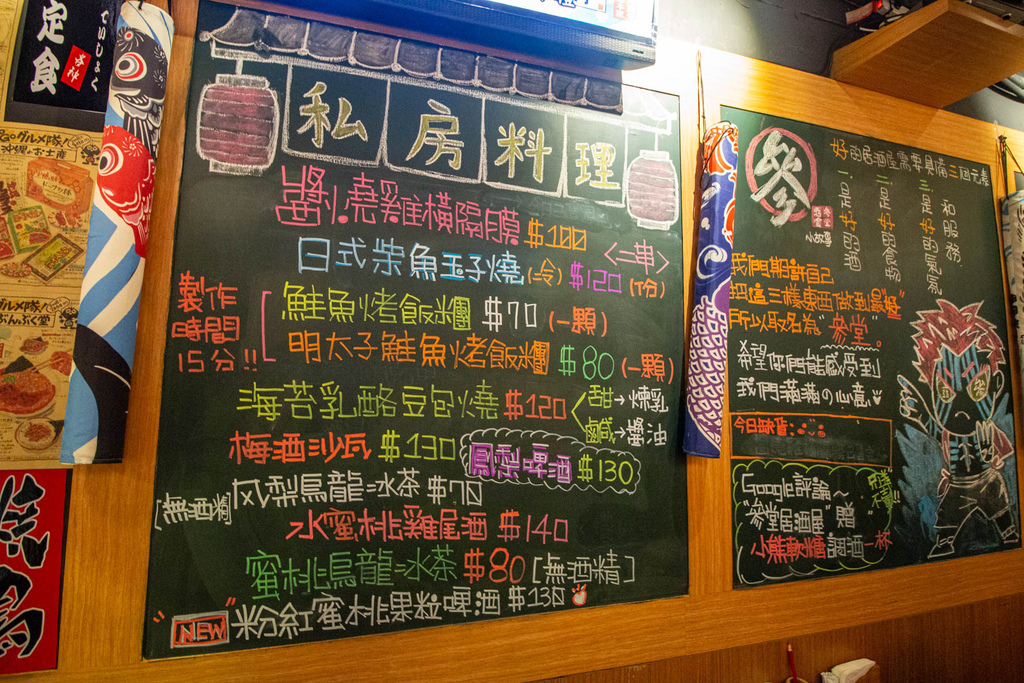 定食
ていしょく
私房料理
醬燒雞橫隔膜 $100 <二串>
日式柴魚玉子燒(冷) $120 (1份)
製作
時間
15分!!
鮭魚烤飯糰 $70 (一顆)
明太子鮭魚烤飯糰 $80 (一顆)
海苔乳酪豆包燒 $120
甜→煉乳
鹹→醬油
梅酒沙瓦 $130
鳳梨啤酒 $130
[無酒精]
风梨烏龍冰茶 $70
水蜜桃雞尾酒 $140
蜜桃烏龍冰茶 $80 [無酒精]
"NEW" 粉紅蜜桃果粒啤酒 $130
参
小故事
好的居酒屋需要具備三個元素
一是好的酒
二是好的食物
三是好的氣氛
和服務
我們期許自己
把這三樣東西做到最"好"
所以取名為"参堂"。
希望你們能感受到
我們滿滿的心意
今日缺貨:
Google評論~
"参堂居酒屋"贈
小熊軟糖調酒一杯